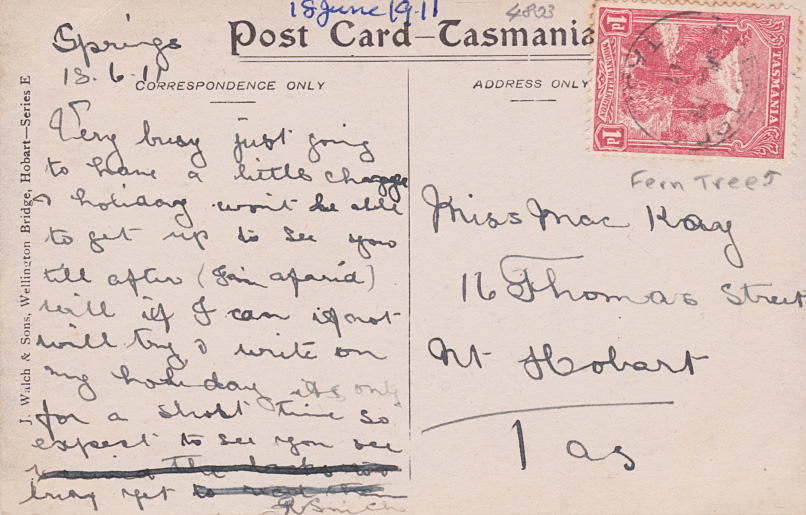 18 June 1911
4823
Post Card-Tasmania
CORRESPONDENCE ONLY
ADDRESS ONLY
J. Walch & Sons, Wellington Bridge, Hobart—Series E
Springs
18.6.11
Very busy just going
to have a little change
& holiday won't be able
to get up to see you
till after (I'm afarid)
will if I can if not
will try & write on
my holiday its only
for a short time so
expect to see you
busy yet to
R Smith
1d
TASMANIA
MOUNT WELLINGTON
1d
Fern Tree
Miss Mac Kay
16 Thomas Street
Nt Hobart
Tas